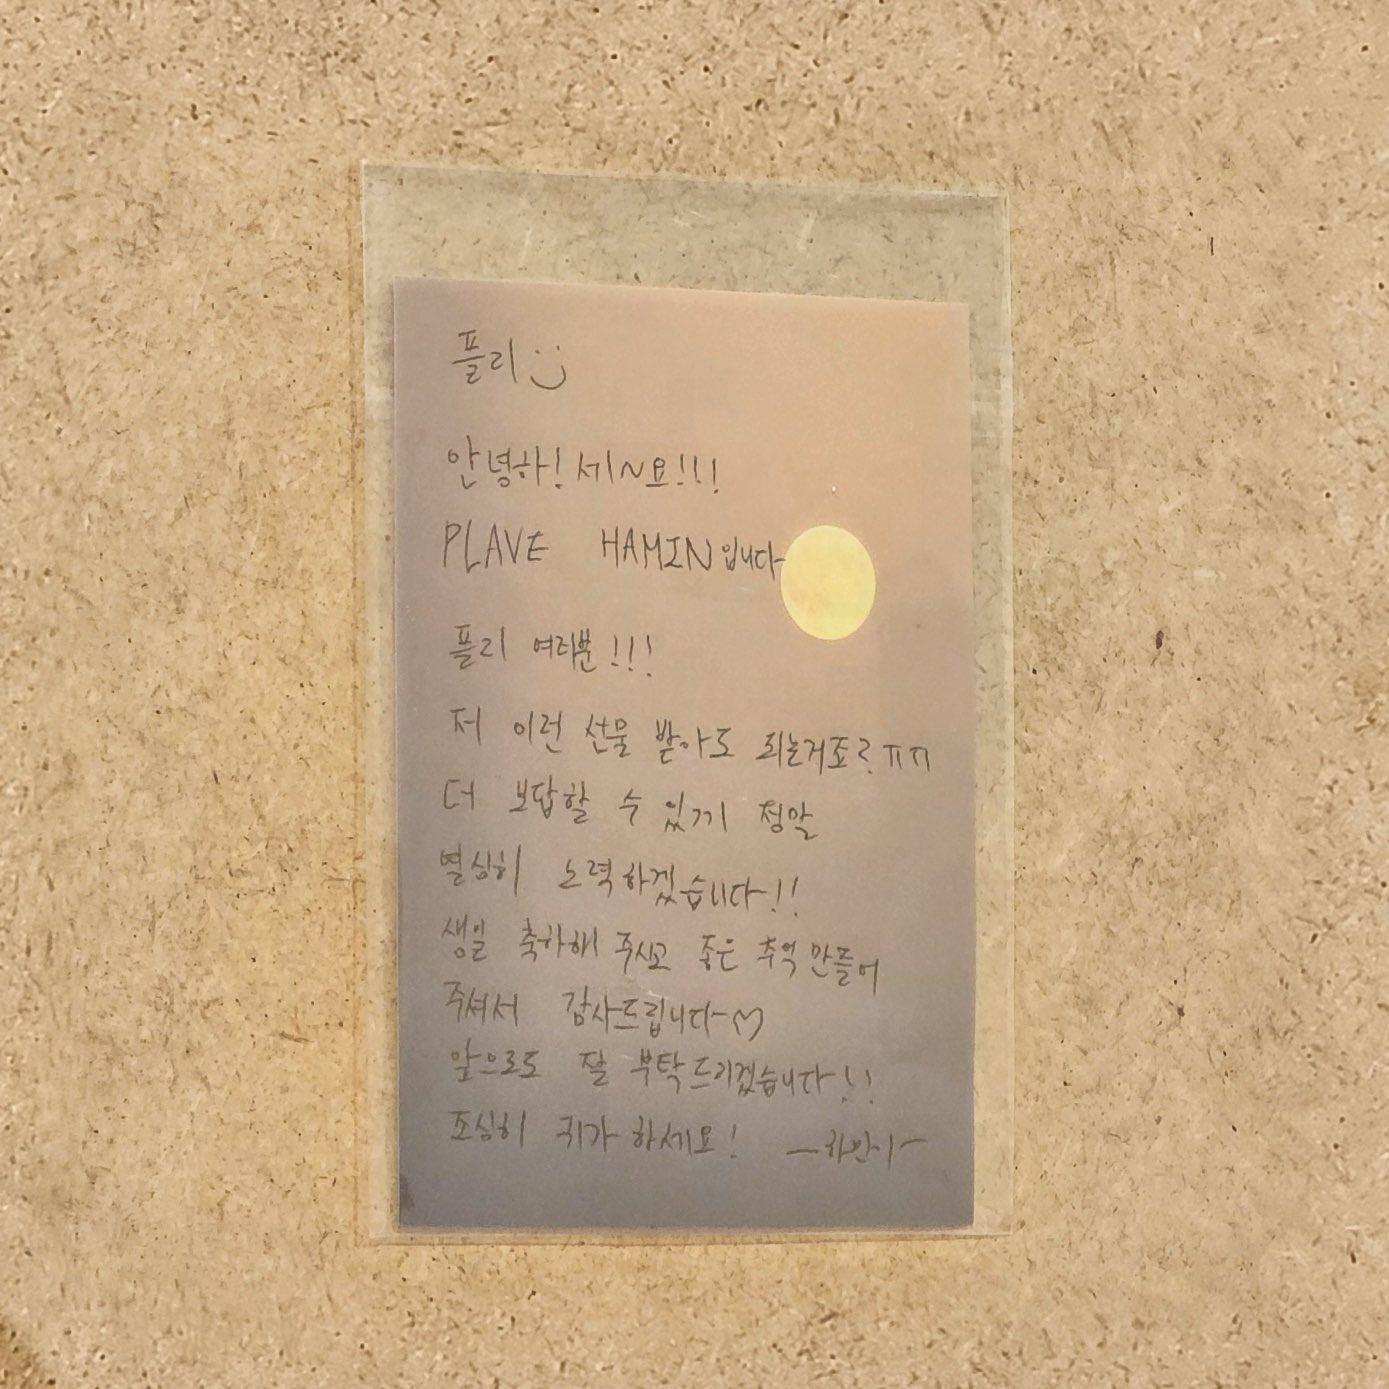 플리 :)
안녕하!세~요!!!
PLAVE HAMIN입니다
플리 여러분!!!
저 이런 선물 받아도 되는거죠? ㅠㅠ
더 보답할 수 있게 정말
열심히 노력하겠습니다!!
생일 축하해 주시고 좋은 추억 만들어
주셔서 감사드립니다♡
앞으로도 잘 부탁드리겠습니다!!
조심히 귀가 하세요! -하민이-